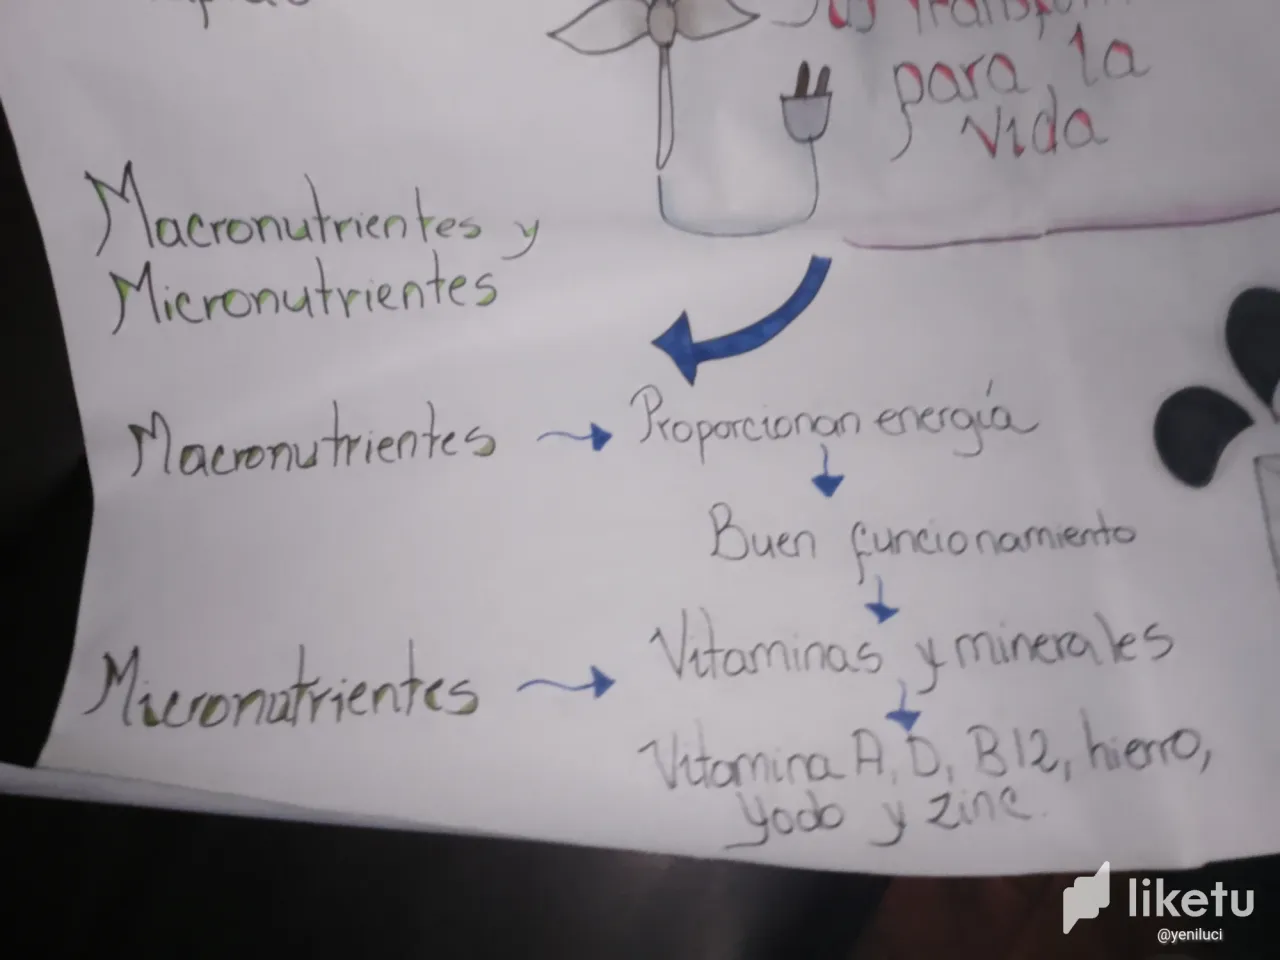 para la
vida
Macronutrientes y
Micronutrientes
Macronutrientes
Proporcionan energía
Buen funcionamiento
Micronutrientes
Vitaminas y minerales
Vitamina A, D, B12, hierro,
yodo y zinc.
liketu
@yeniluci